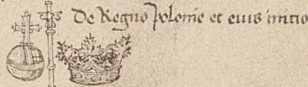 De Regno polonie et eius inicio